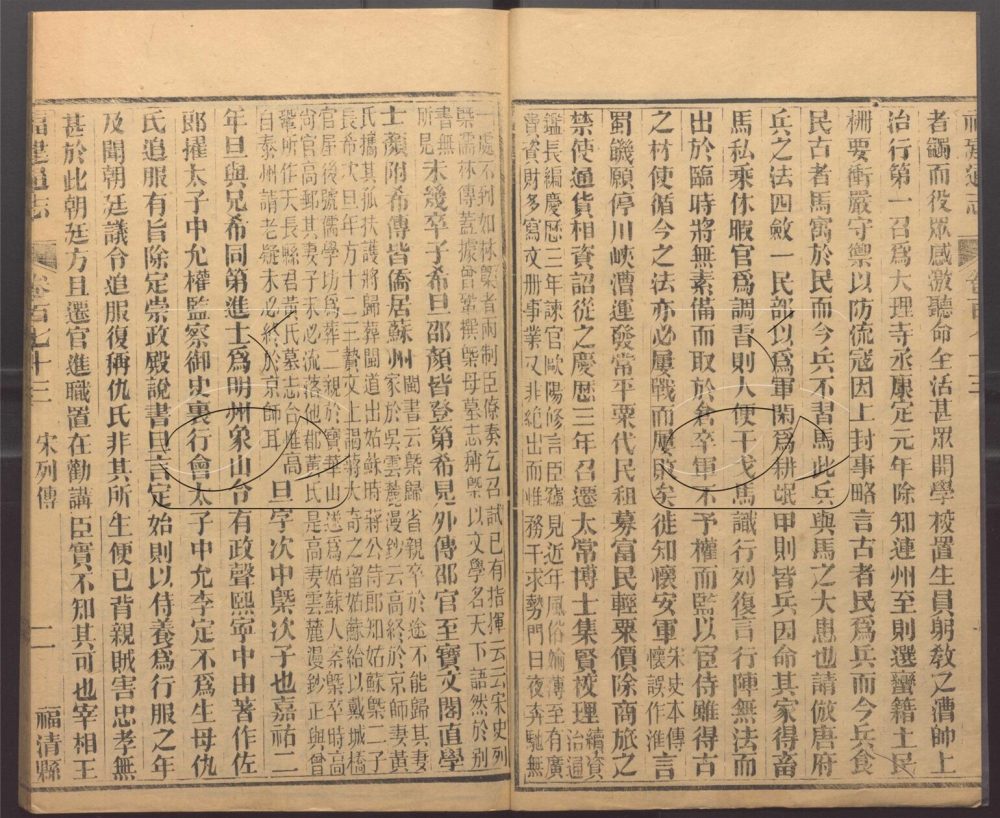 福建通志 卷百七十三
者蠲而役眾感激聽命全活甚眾開學校置生員躬教之漕帥上
治行第一召爲大理寺丞康定元年除知連州至則選蠻籍土民
柵要衝嚴守禦以防流寇因上封事略言古者民爲兵而今兵食
民古者馬寓於民而今兵不習馬此兵與馬之大患也請倣唐府
兵之法四斂一民部以爲軍閑爲耕氓甲則皆兵因命其家得畜
馬私乘休暇官爲調習則人便干戈馬識行列復言行陣無法而
出於臨時將無素備而取於倉卒軍不予權而監以宦侍雖得古
之材使循今之法亦必屢戰而屢敗矣徙知懷安軍宋史本傳懷誤作淮言
蜀饑願停川峽漕運發常平粟代民租募富民輕粟價除商旅之
禁使通貨相資詔從之慶歷三年召還太常博士集賢校理續資治通
鑑長編慶歷三年諫官歐陽修言臣竊見近年風俗婾薄至有廣
費資財多寫文冊事業又非絶出而惟務干求勢門日夜奔馳無
一處不到如林㮣者兩制臣僚奏乞召試已有指揮云云宋史列
㮣儒林傳蓋據曾鞏撰㮣母墓志稱㮣以文學名天下語然於別
書無所見未幾卒子希旦邵顏皆登第希見外傳邵官至寶文閣直學
士顏附希傳皆僑居蘇州閩書云㮣歸省親卒於途不能歸其妻家於吳雲麓漫鈔云高終於京師妻黃
氏攜其孤扶護將歸葬閩道出姑蘇時蔣公侍郎知姑蘇㮣二子
長希次旦年方十二三贄文上謁蔣大奇之留姑蘇給以戴城橋
官屋後號儒學坊爲葬二親於寶華山遂爲姑蘇人案㮣卒時高
尚官高郵其妻子未必流落他郡黃氏是高妻雲麓漫鈔正與曾
鞏所作天長縣君黃氏墓志合惟高自泰州請老疑未必終於京師耳旦字次中㮣次子也嘉祐二
年旦與兄希同第進士爲明州象山令有政聲熙寧中由著作佐
郎擢太子中允權監察御史裏行會太子中允李定不爲生母仇
氏追服有旨除定崇政殿說書旦言定始則以侍養爲行服之年
及聞朝廷議令追服復稱仇氏非其所生便已背親賊害忠孝無
甚於此朝廷方且遷官進職置在勸講臣實不知其可也宰相王
福建通志 卷百七十三 宋列傳 二 福清縣